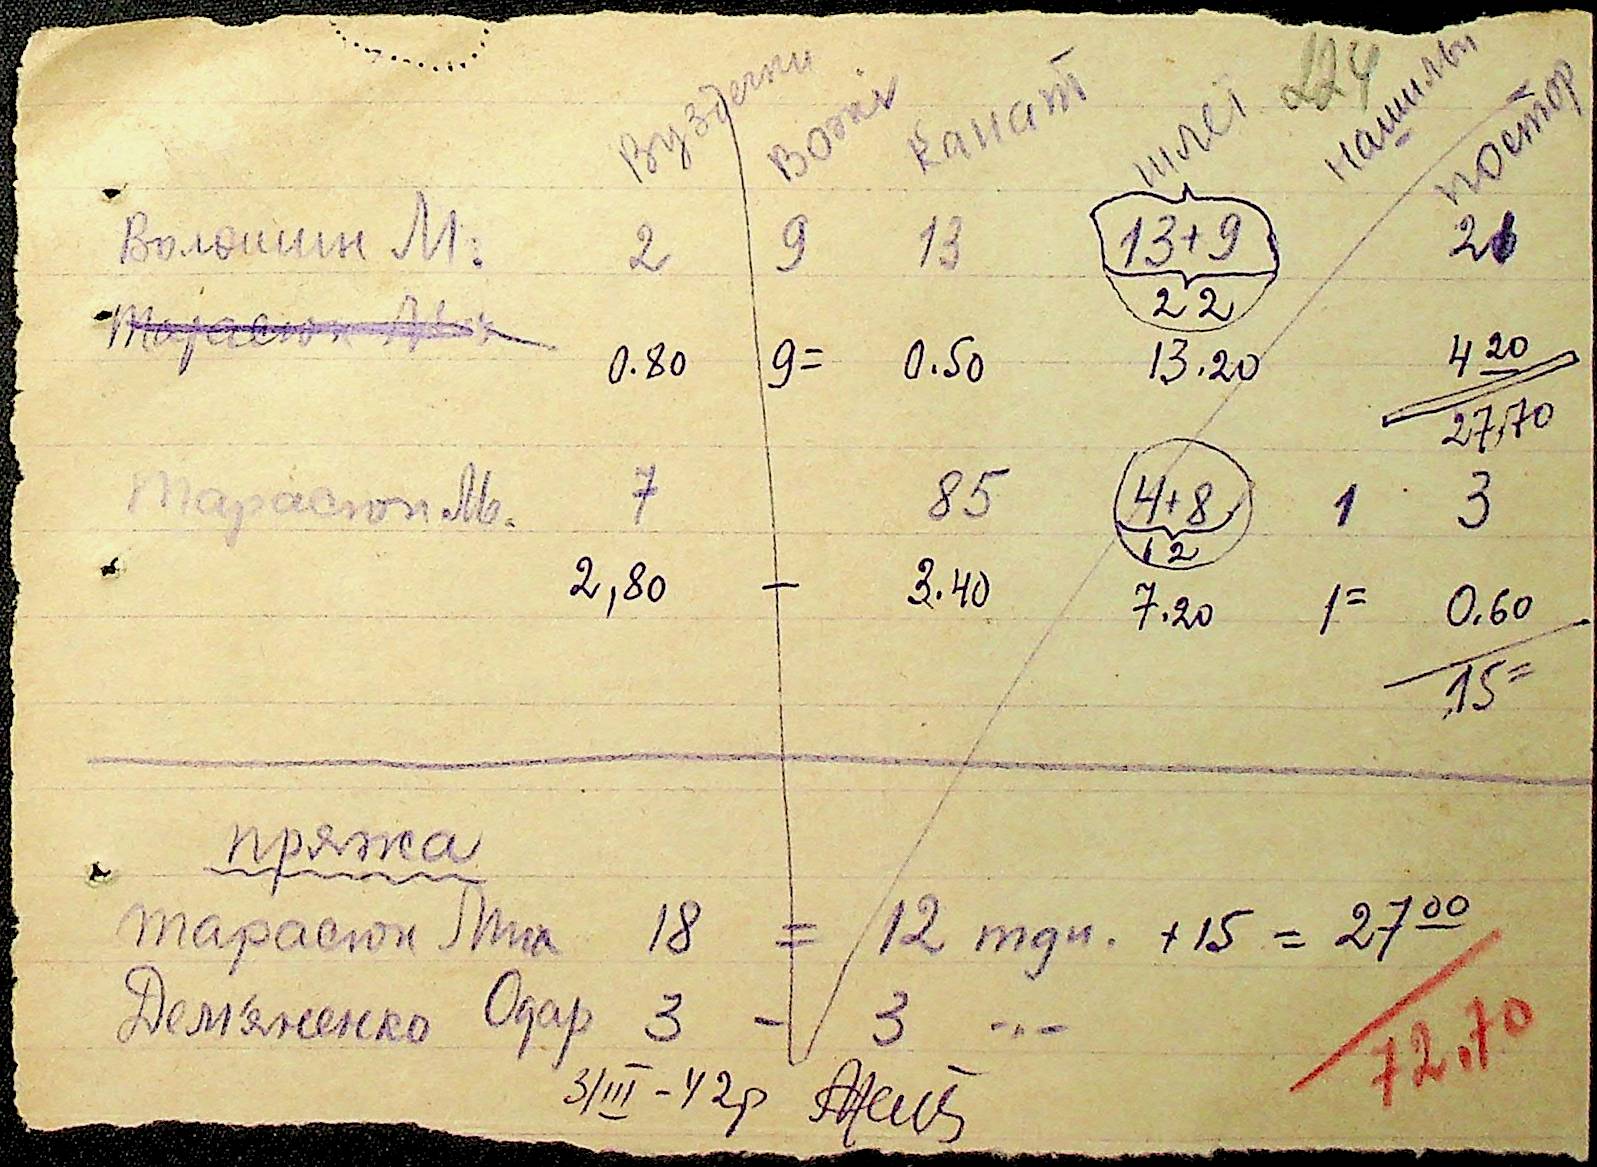 224
Вуздечки Вожки Канат шлеї нашильн постор
Волошин М: 2 9 13 13+9 21
22
Тарасюк
0.80 9= 0.50 13.20 4 20
27,70
Тарасюк М. 7 85 4+8 1 3
12
2,80 — 3.40 7.20 1= 0.60
15=
пряжа
Тарасюк 18 = 12 тдн. +15 = 27 00
Дем'яненко Одар 3 — 3 -"-
72,70
3/III-42р